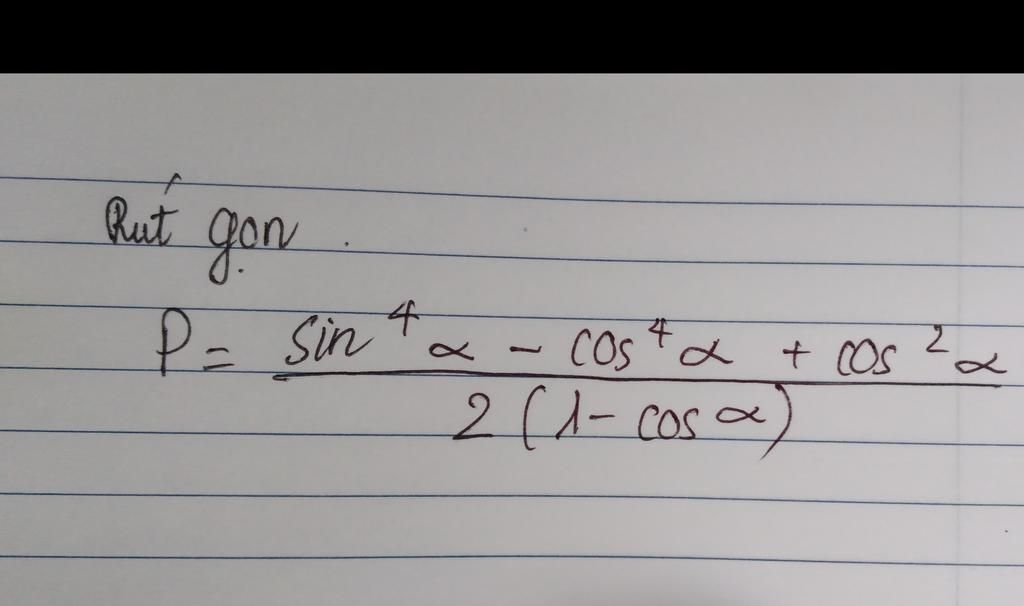 Rút gọn.
P = \frac{sin^4 α - cos^4 α + cos^2 α}{2(1 - cos α)}